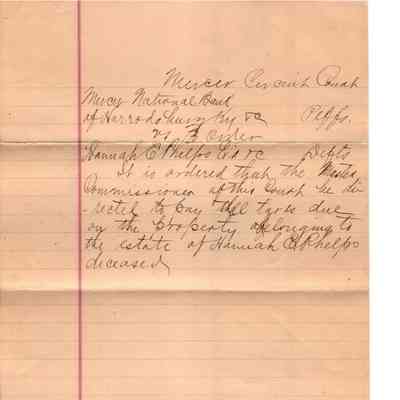 Mercer Circuit Court
Mercer National Bank
of Harrodsburg Ky &c Plffs.
vs } Order
Hannah C Phelps &c Defts
It is ordered that the Master
Commissioner of this Court be di
-rected to pay the taxes due
on the property belonging to
the estate of Hannah C Phelps
deceased